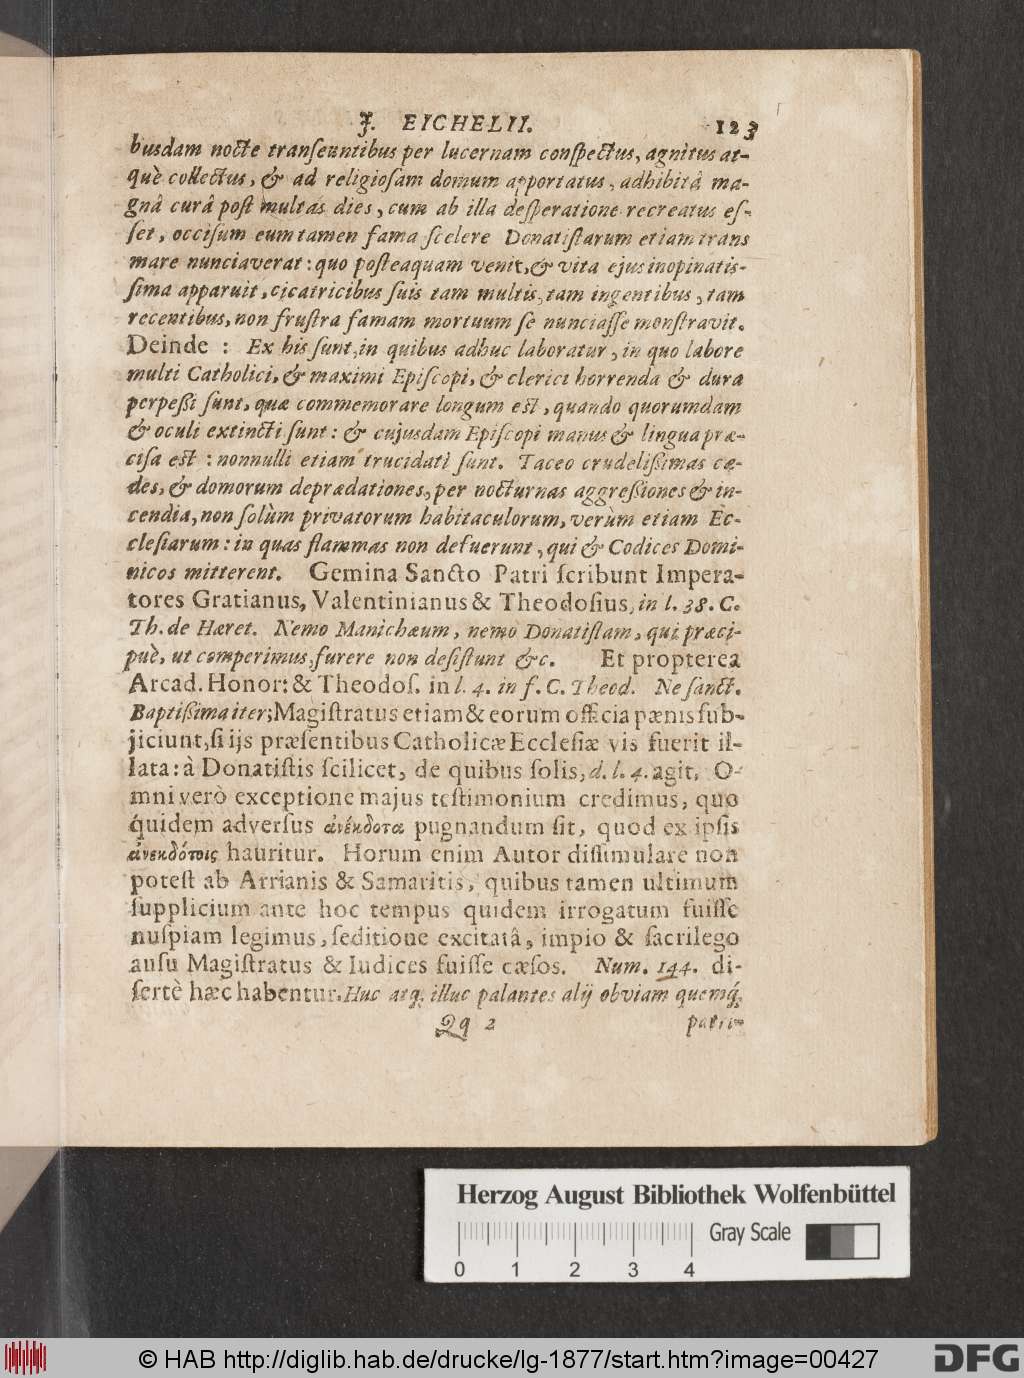 J. EICHELII. 123
busdam nocte tranſeuntibus per lucernam conſpectus, agnitus at-
què collectus, & ad religioſam domum apportatus, adhibitâ ma-
gnâ curâ poſt multas dies, cum ab illa deſperatione recreatus eſ-
ſet, occiſum eum tamen fama ſcelere Donatiſtarum etiam trans
mare nunciaverat: quo poſteaquam venit, & vita ejus inopinatiſ-
ſima apparuit, cicatricibus ſuis tam multis, tam ingentibus, tam
recentibus, non fruſtra famam mortuum ſe nunciaſſe monſtravit.
Deinde : Ex his ſunt, in quibus adhuc laboratur, in quo labore
multi Catholici, & maximi Epiſcopi, & clerici horrenda & dura
perpeßi ſunt, quæ commemorare longum eſt, quando quorumdam
& oculi extincti ſunt: & cujusdam Epiſcopi manus & lingua præ-
ciſa eſt : nonnulli etiam trucidati ſunt. Taceo crudelißimas cæ-
des, & domorum deprædationes, per nocturnas aggreßiones & in-
cendia, non ſolùm privatorum habitaculorum, verùm etiam Ec-
cleſiarum: in quas flammas non defuerunt, qui & Codices Domi-
nicos mitterent. Gemina Sancto Patri ſcribunt Impera-
tores Gratianus, Valentinianus & Theodoſius, in l. 38. C.
Th. de Hæret. Nemo Manichæum, nemo Donatiſtam, qui præci-
puè, ut comperimus, furere non deſiſtunt &c. Et propterea
Arcad. Honor: & Theodoſ. in l. 4. in f. C. Theod. Ne ſanct.
Baptißima iter; Magiſtratus etiam & eorum officia pænis ſub-
jiciunt, ſi ijs præſentibus Catholicæ Eccleſiæ vis fuerit il-
lata: à Donatiſtis ſcilicet, de quibus ſolis, d. l. 4. agit. O-
mni verò exceptione majus teſtimonium credimus, quo
quidem adverſus ἀνέκδοτα pugnandum ſit, quod ex ipſis
ἀνεκδότοις hauritur. Horum enim Autor diſſimulare non
poteſt ab Arrianis & Samaritis, quibus tamen ultimum
ſupplicium ante hoc tempus quidem irrogatum fuiſſe
nuſpiam legimus, ſeditione excitatâ, impio & ſacrilego
auſu Magiſtratus & Iudices fuiſſe cæſos. Num. 144. di-
ſertè hæc habentur. Huc atq; illuc palantes alij obviam quemq́;
Qq 2 patri-
Herzog August Bibliothek Wolfenbüttel
Gray Scale
0 1 2 3 4
© HAB http://diglib.hab.de/drucke/lg-1877/start.htm?image=00427
DFG